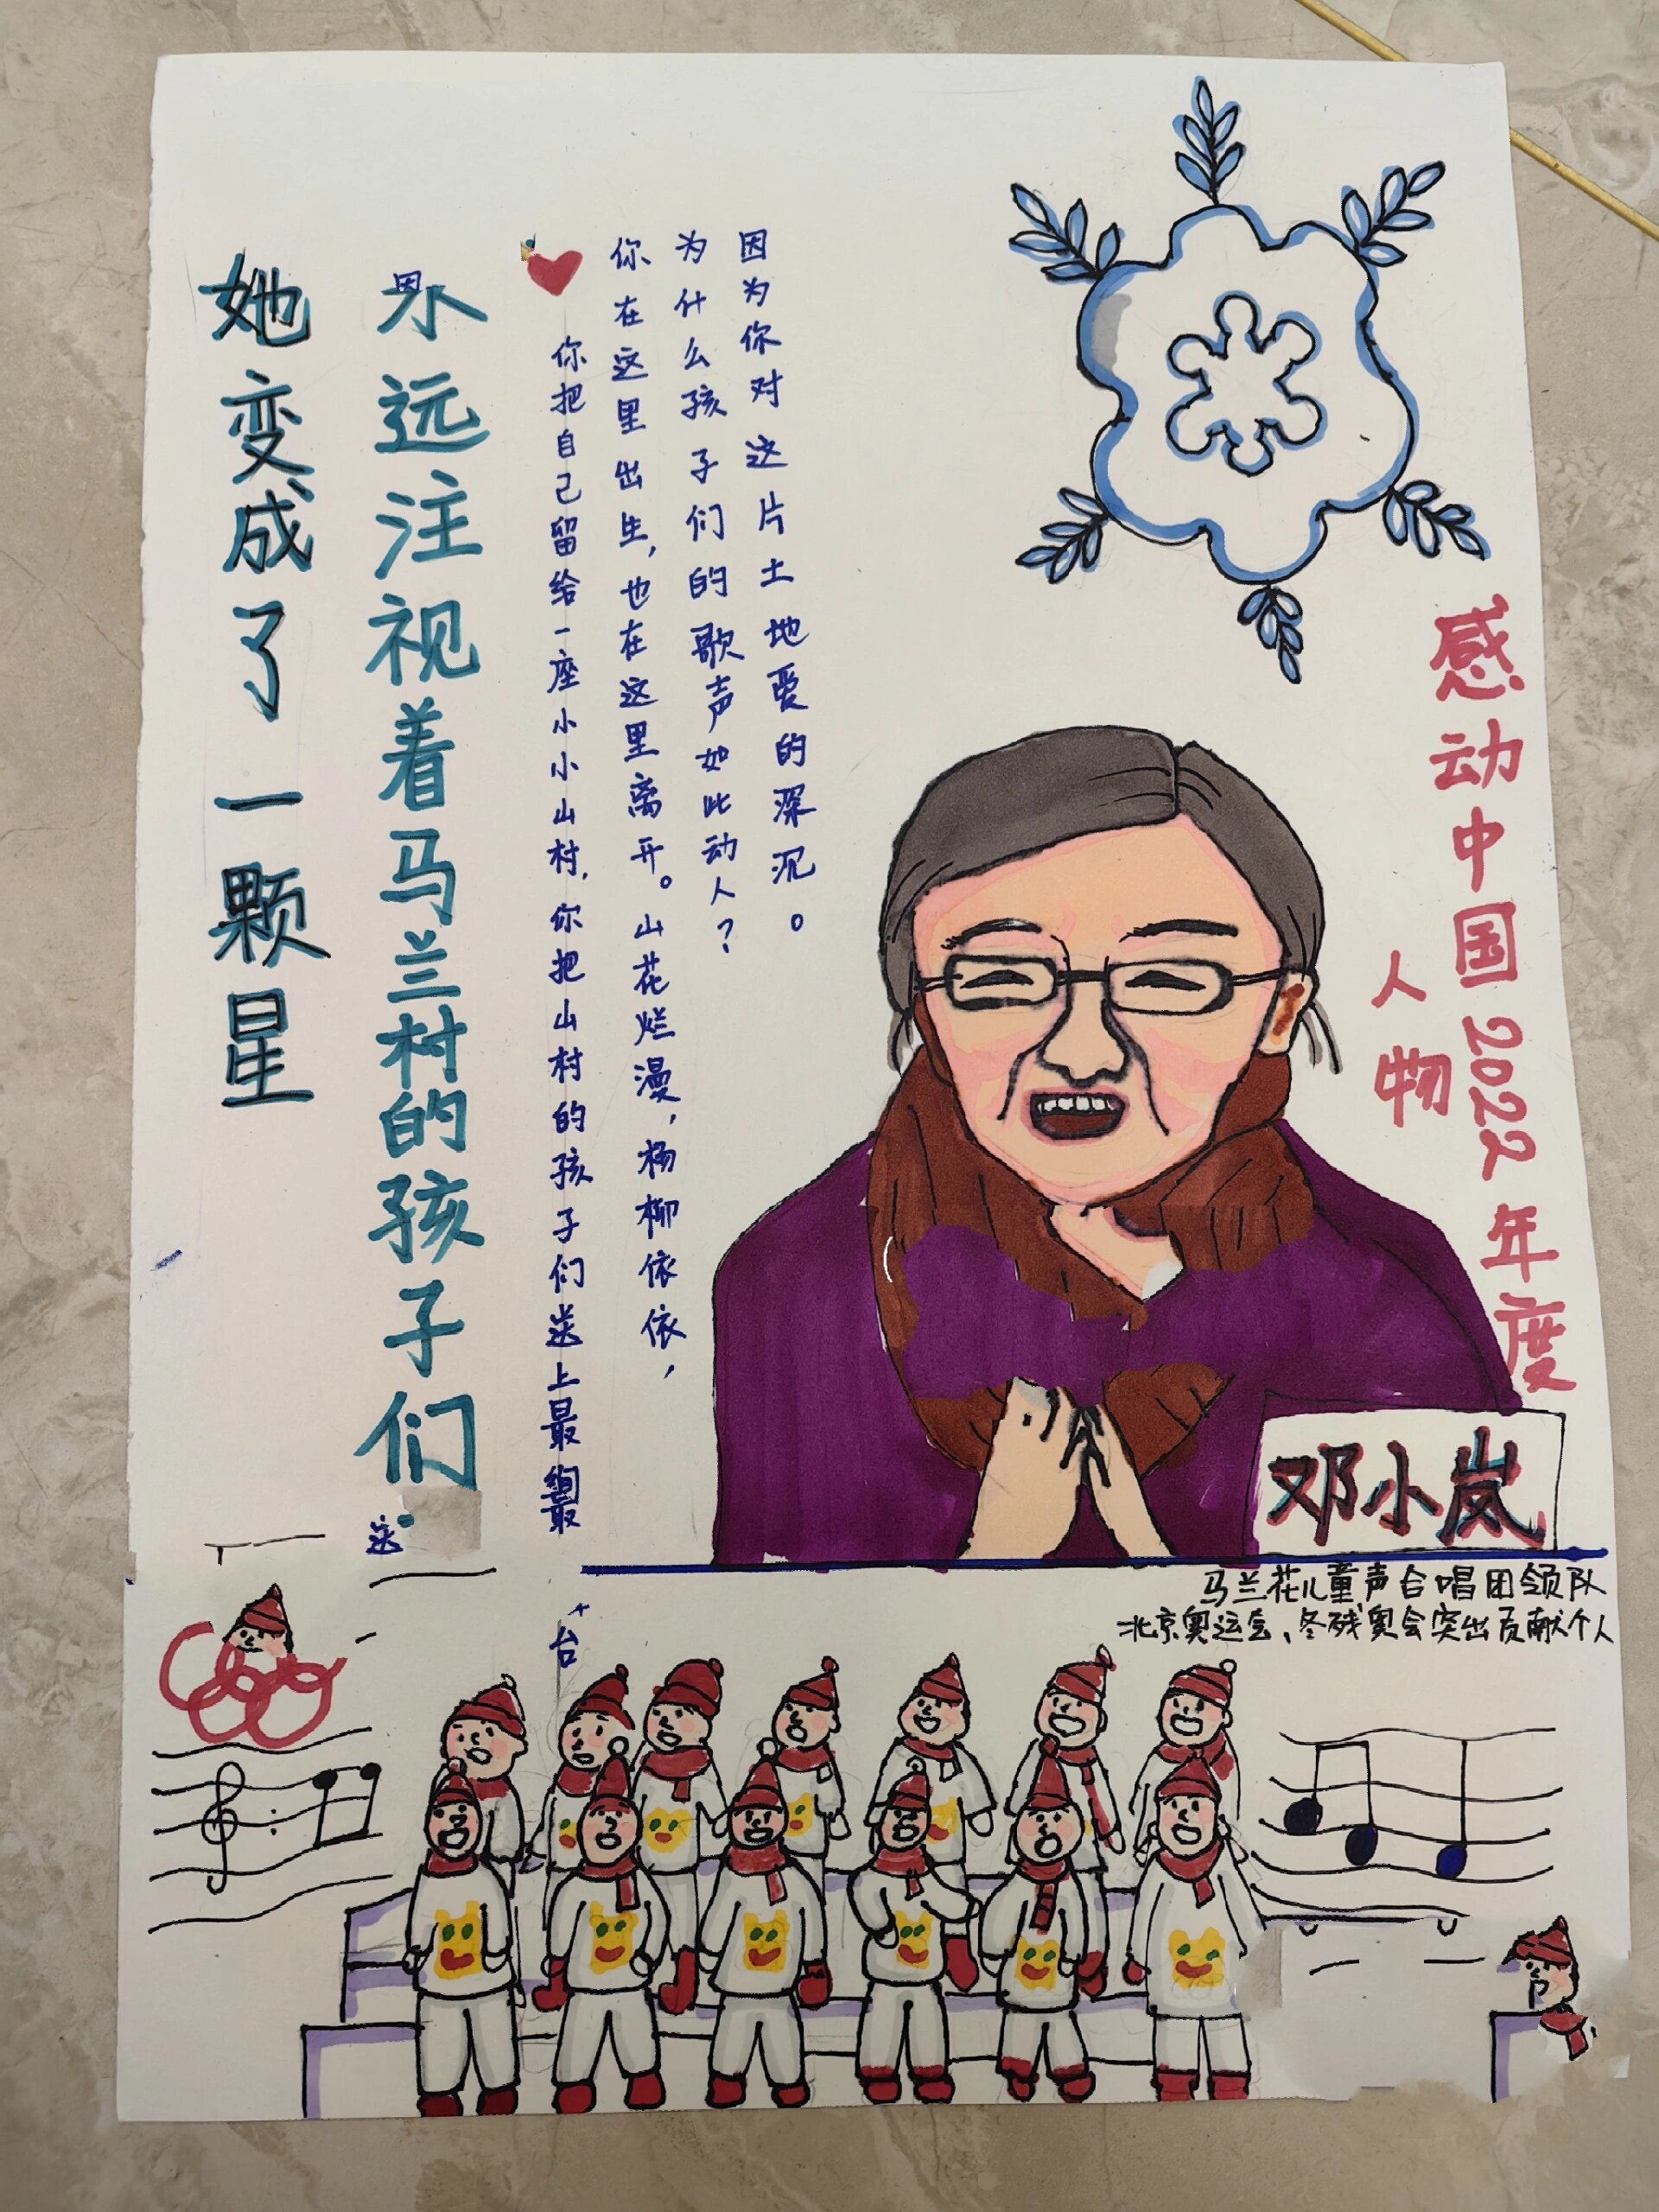 她变成了一颗星
永远注视着马兰村的孩子们
你把自己留给一座小小山村,你把山村的孩子们送上最
你在这里出生,也在这里离开。山花烂漫,杨柳依依,
为什么孩子们的歌声如此动人?
因为你对这片土地爱的深沉。
感动中国2022年度
人物
邓小岚
马兰花儿童声合唱团领队
北京奥运会、冬残奥会突出贡献个人
送
台